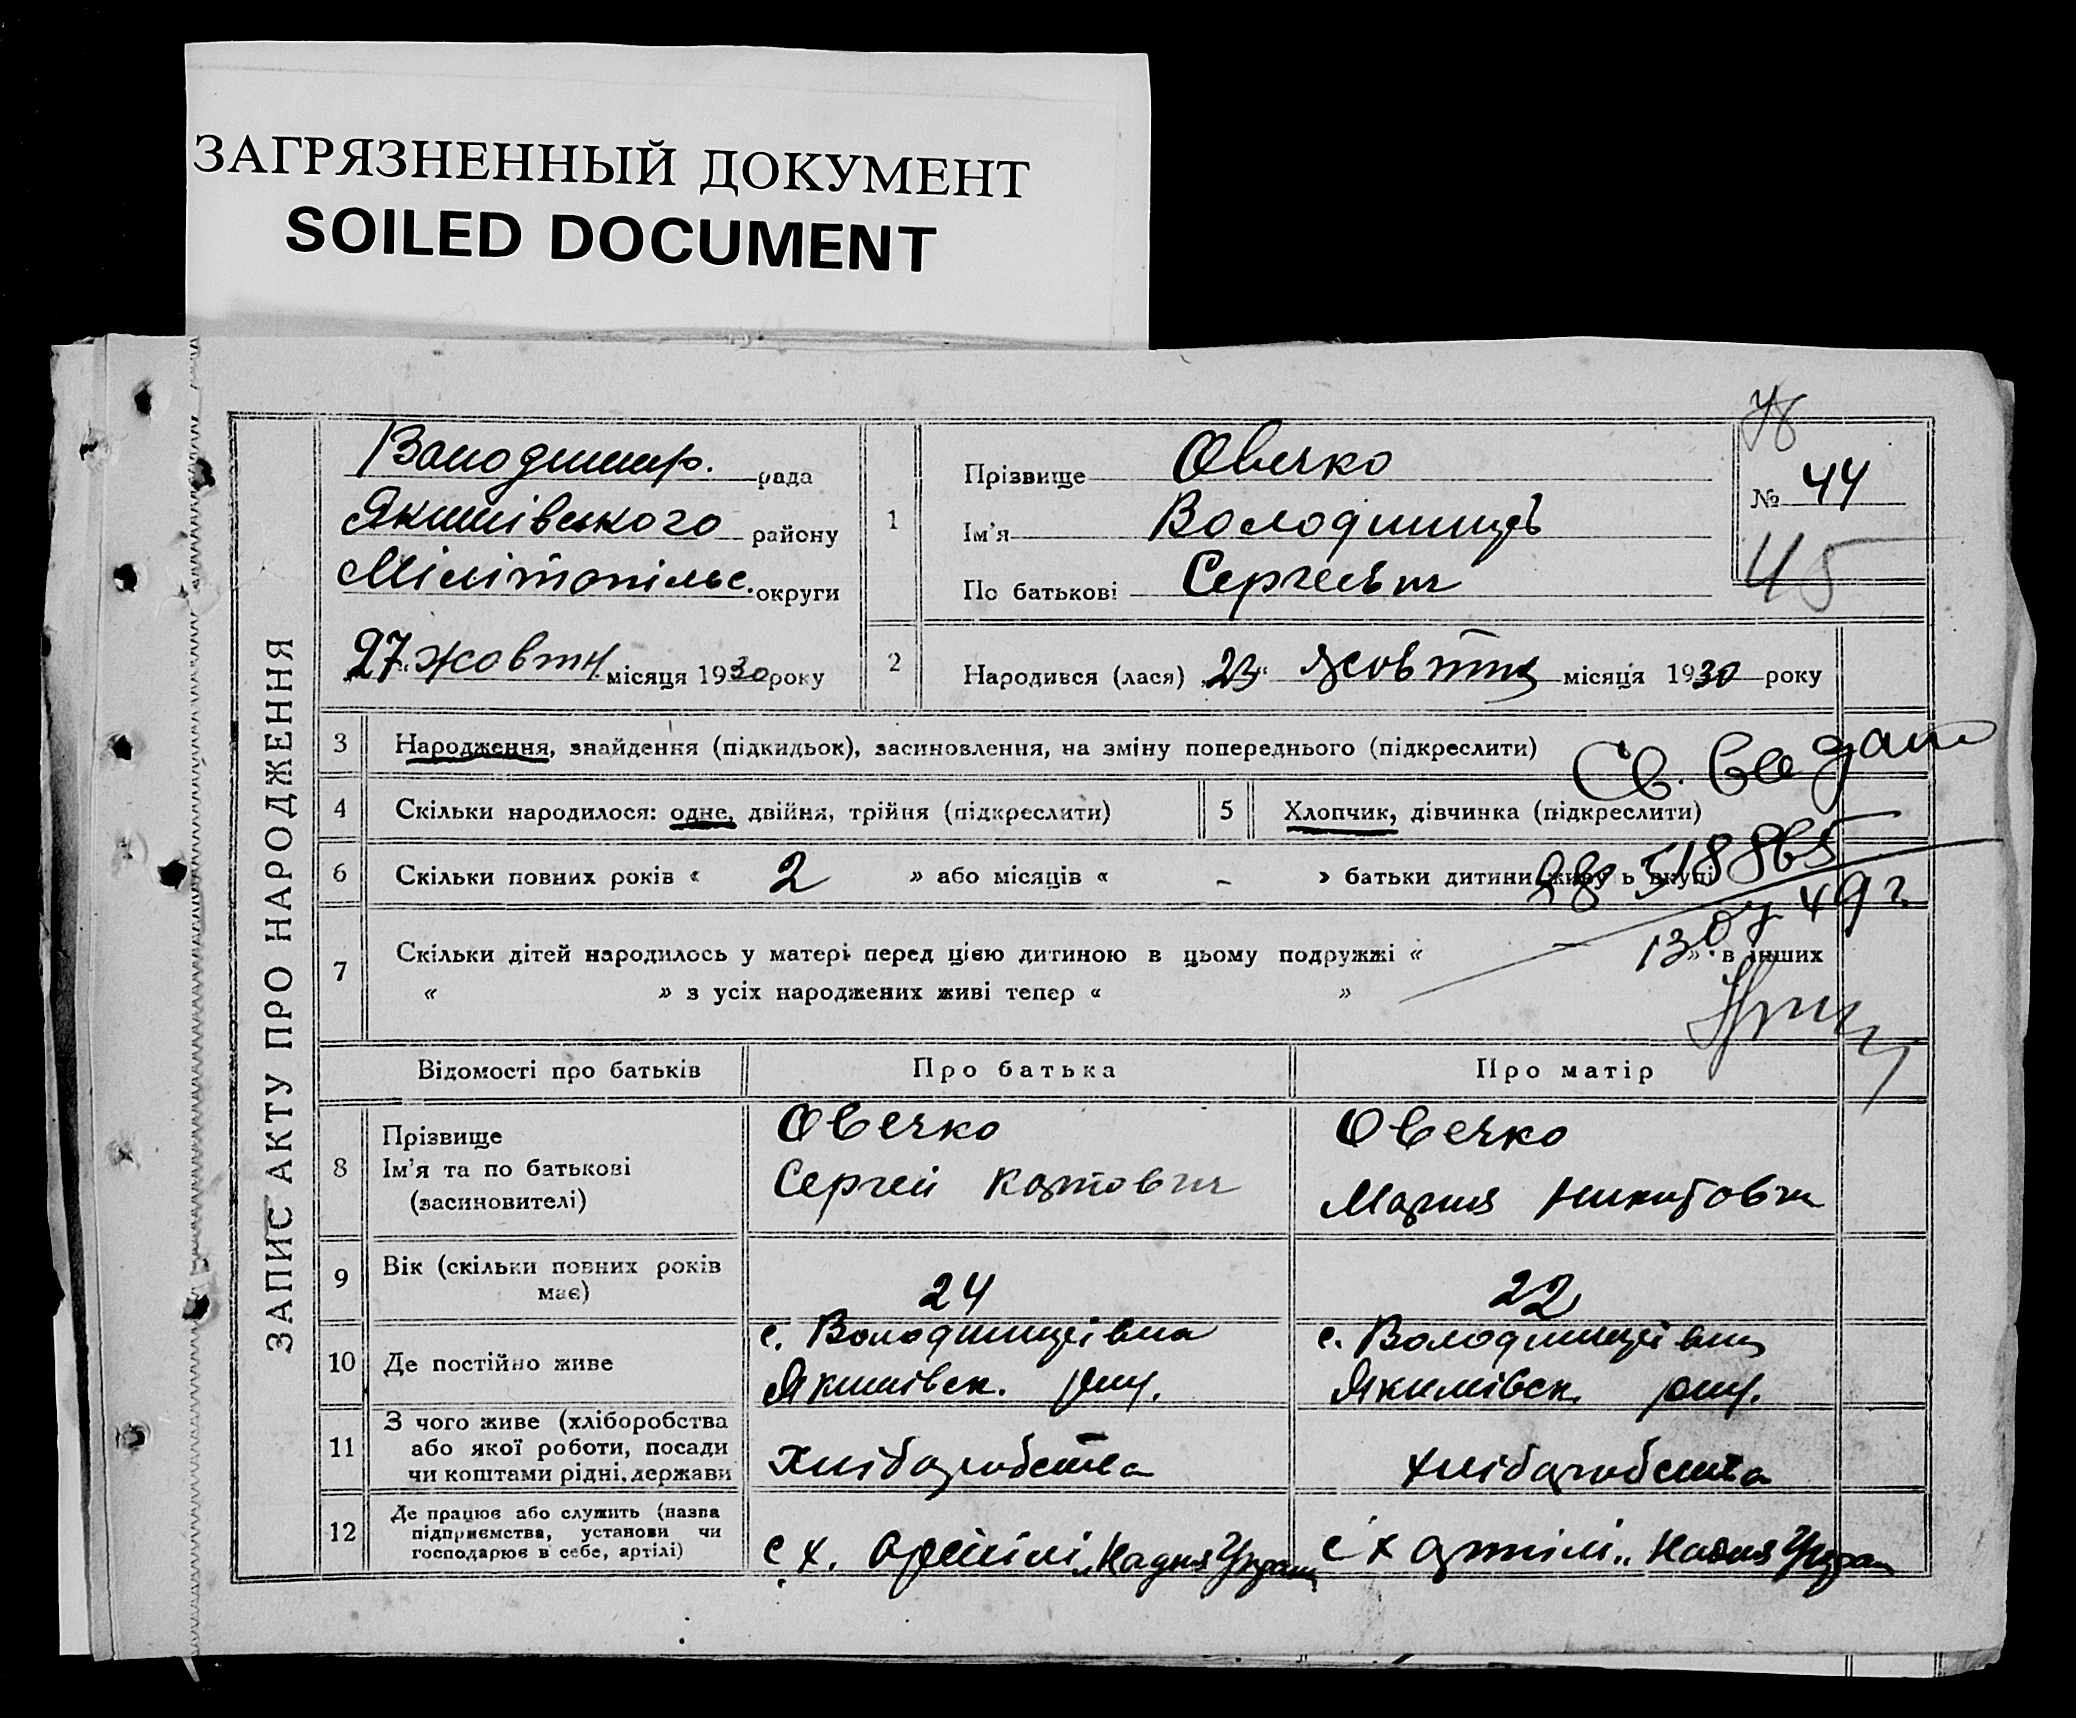 ЗАГРЯЗНЕННЫЙ ДОКУМЕНТ
SOILED DOCUMENT
ЗАПИС АКТУ ПРО НАРОДЖЕННЯ
Володимир. рада
Якимівського району
Мілітопільс. округи
27 жовтн. місяця 1930 року
1
Прізвище Овечко
Ім'я Володимир
По батькові Сергеевич
№ 44
45
2 Народився (лася) „23“ жовтня місяця 1930 року
3 Народження, знайдення (підкидьок), засиновлення, на зміну попереднього (підкреслити)
Св. выдано
4 Скільки народилося: одне, двійня, трійня (підкреслити)
5 Хлопчик, дівчинка (підкреслити)
6 Скільки повних років « 2 » або місяців « – » батьки дитини живуть вкупі
518865
13 07 49 г.
7 Скільки дітей народилось у матері перед цією дитиною в цьому подружжі « » в інших
« » з усіх народжених живі тепер « »
Відомості про батьків Про батька Про матір
8 Прізвище
Ім'я та по батькові
(засиновителі)
Овечко
Сергей
Овечко
Мария Никитовн
9 Вік (скільки повних років
має)
24
22
10 Де постійно живе
с. Володимирівка
Якимівськ. рай.
с. Володимирівка
Якимівськ. рай.
11 З чого живе (хліборобства
або якої роботи, посади
чи коштами рідні, держави
Хліборобства
хліборобства
12 Де працює або служить (назва
підприємства, установи чи
господарює в себе, артілі)
с х. артілі „Надія Украї
с х артілі „Надия Украї